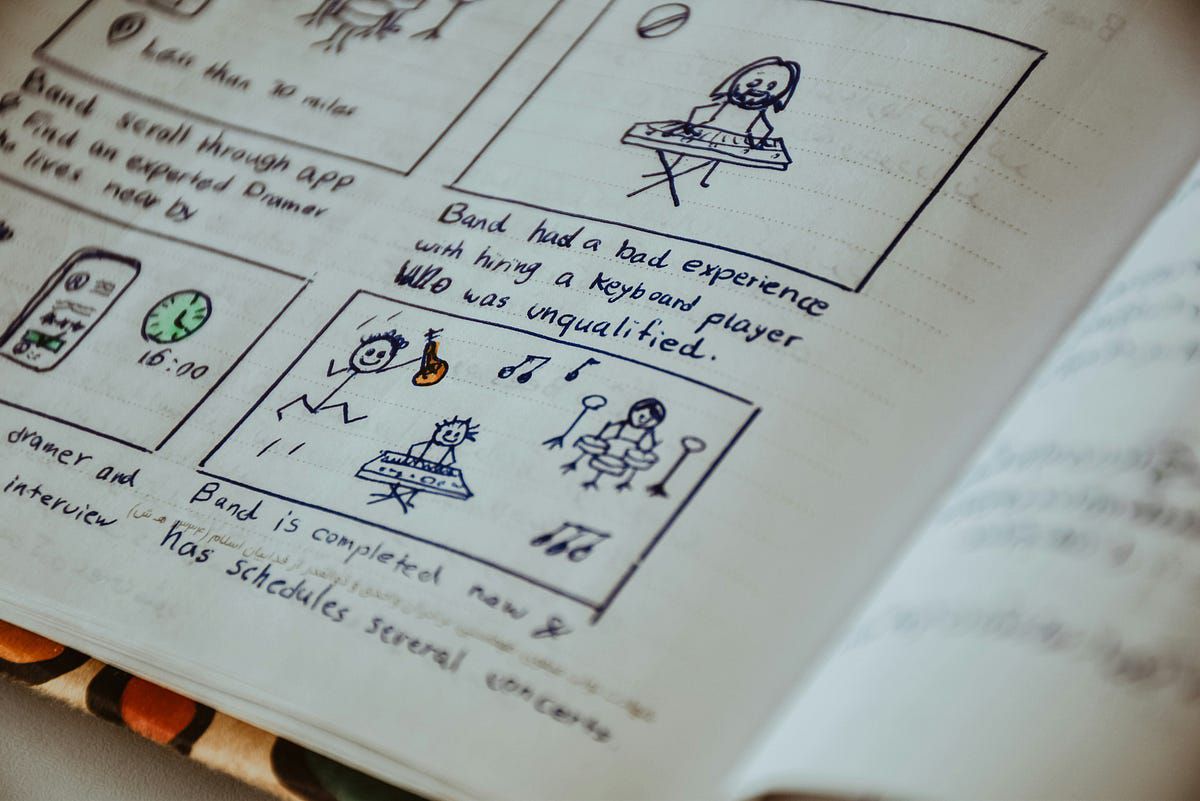 Less than 30 miles
Band scroll through app
Find an experted Dramer
lives near by
Band had a bad experience
with hiring a keyboard player
who was unqualified.
16:00
dramer and
interview
Band is completed now &
has schedules several concerts.
از فداییان اسلام